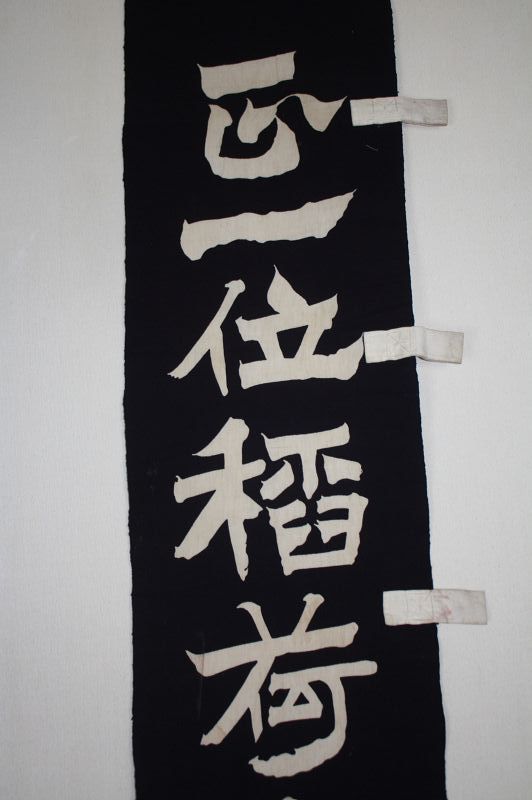 正一位稲荷